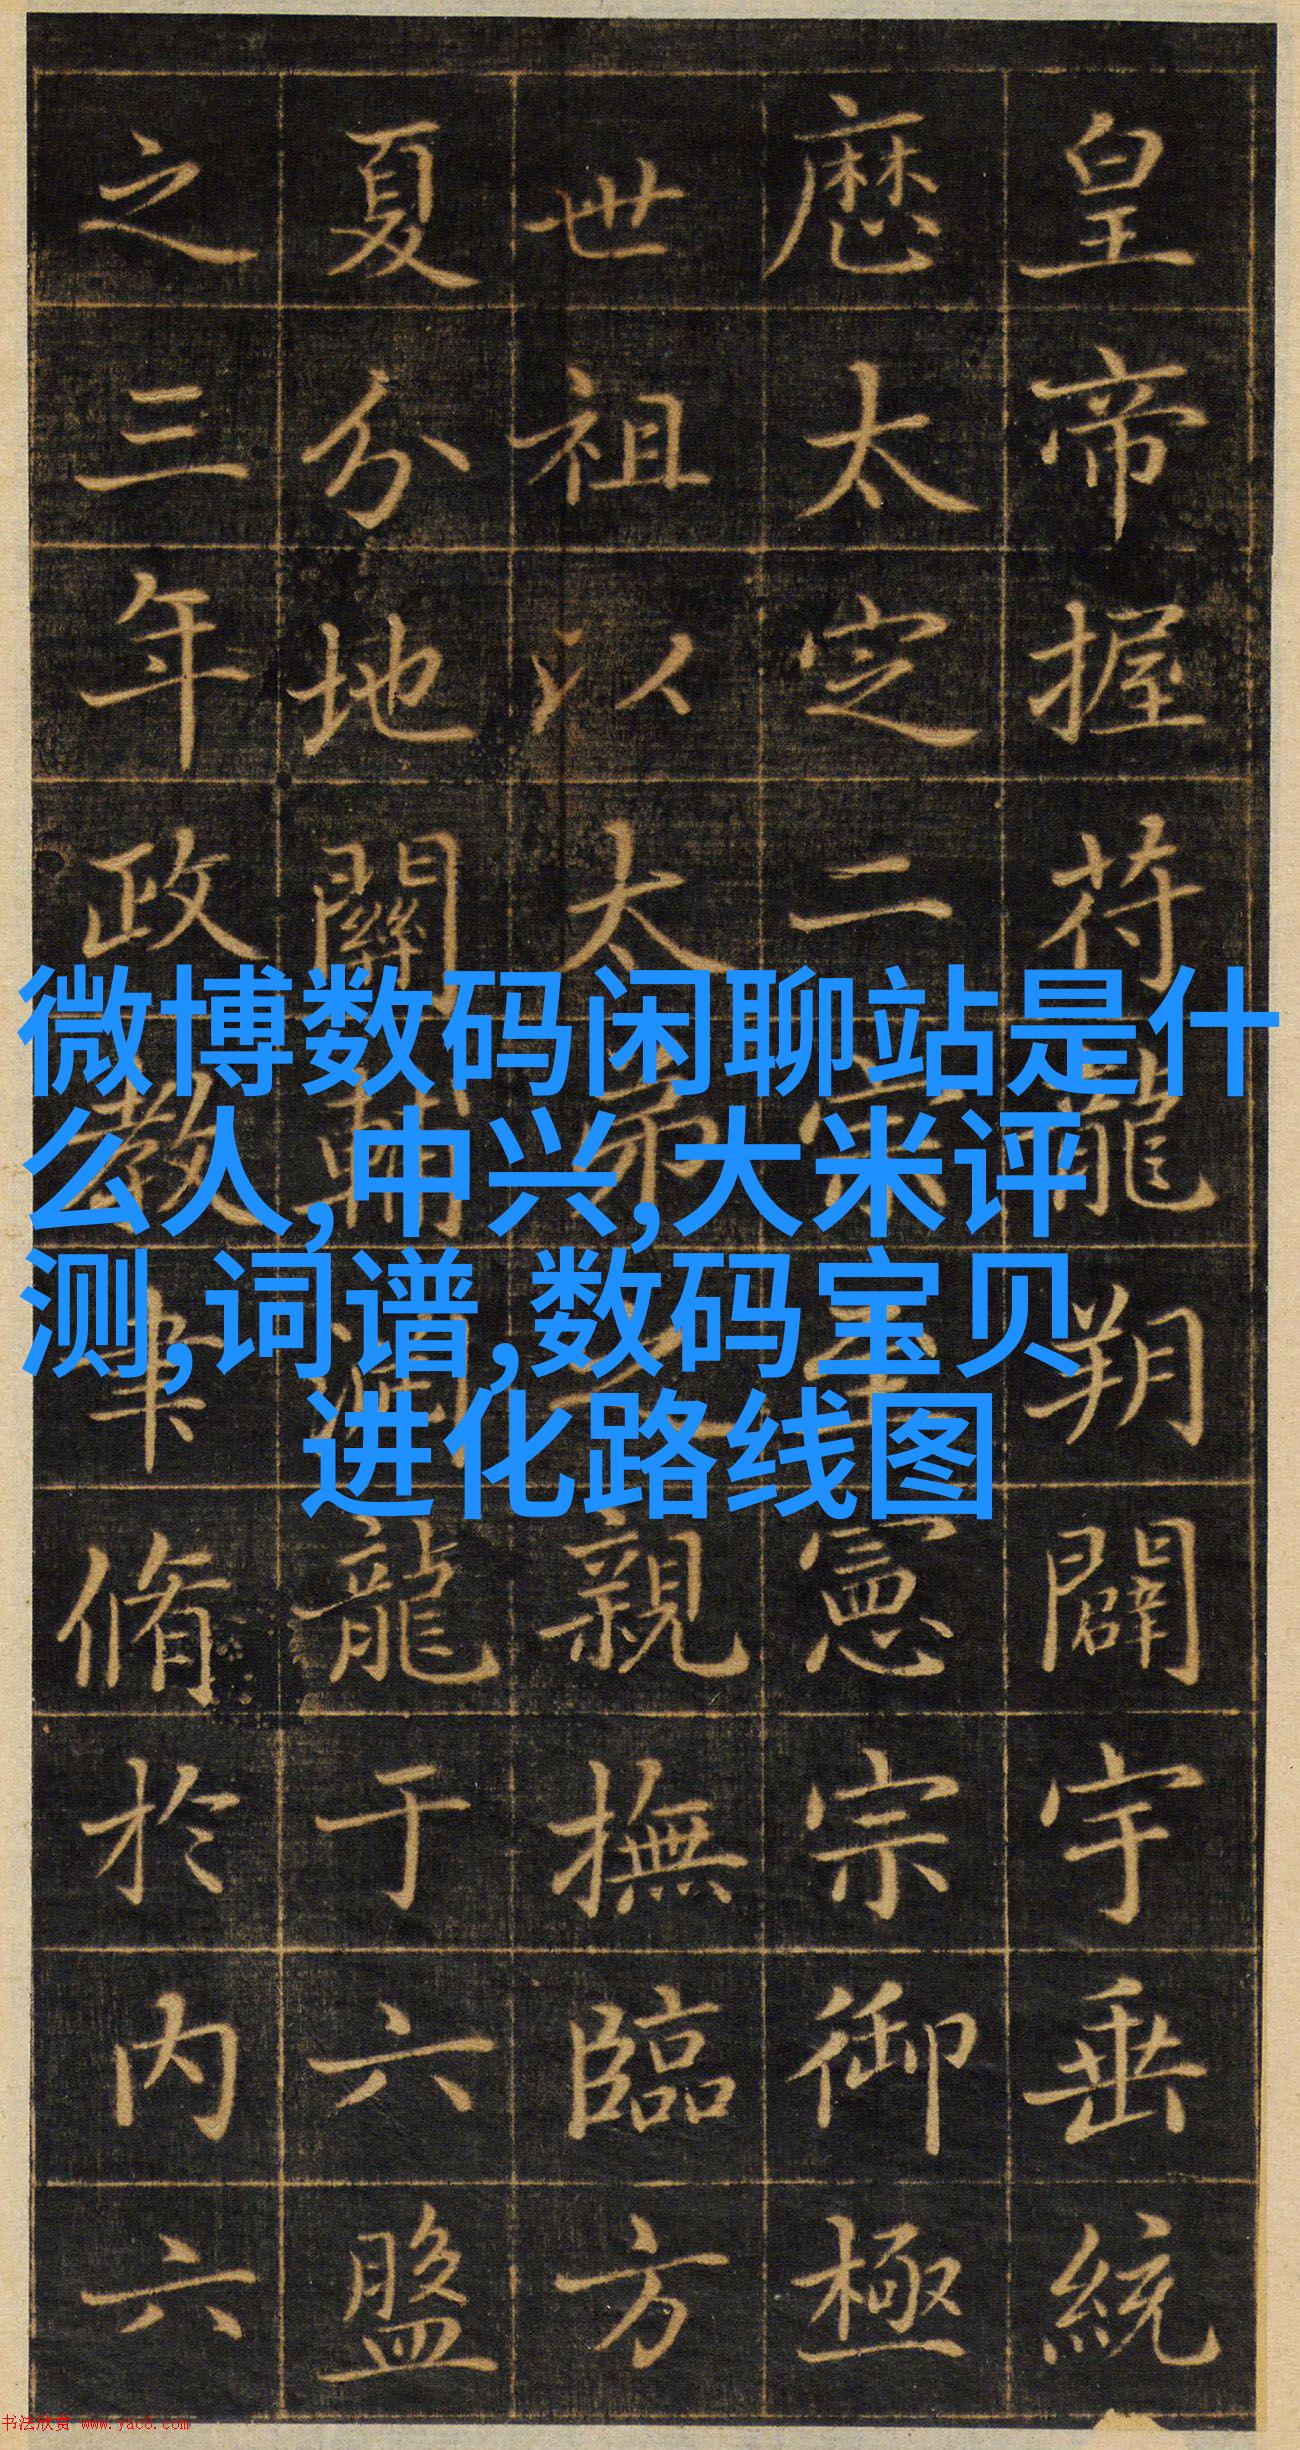 皇帝握苻龍朔闢宇垂統
厯太定二宗憲宗御極
世祖以太弟之親撫臨方
夏分地關輔龍于六盤
之三年政教聿脩於内六
微博数码闲聊站是什
么人,中兴,大米评
测,词谱,数码宝贝
进化路线图
书法欣赏 www.yac8.com